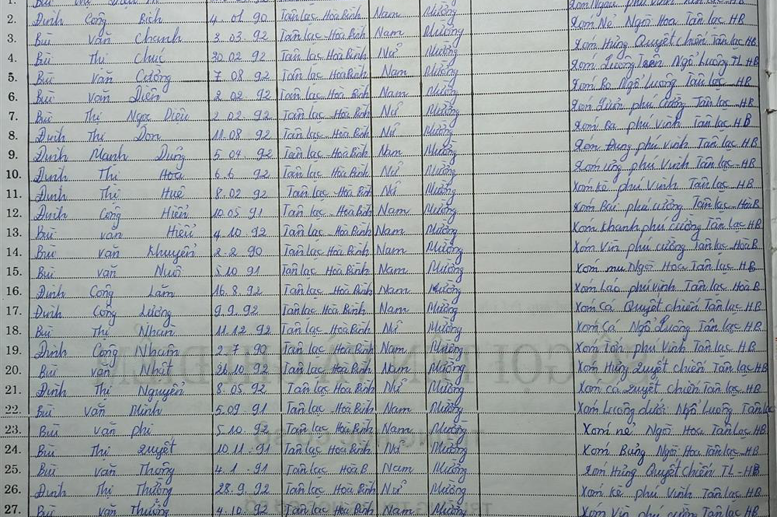 2. Đinh Công Bích 4.01.90 Tân lạc Hoà Bình Nam Mường Xóm Nẻ Ngõ Hoa Tân lạc HB
3. Bùi văn Chanh 3.03.92 Tân lạc Hoà Bình Nam Mường Xóm Hưng Quyết chiến Tân lạc HB
4. Bùi Thị Chúc 30.02.92 Tân lạc Hoà Bình Nữ Mường Xóm Lương Ngô Lương TL HB
5. Bùi văn 7.08.92 Tân lạc Hoà Bình Nam Mường Xóm Bo Ngô Lương Tân lạc HB
6. Bùi văn Diễn 2.02.92 Tân lạc Hoà Bình Nam Mường Xóm phú Cường Tân lạc HB
7. Bùi Thị Ngọc Diệu 2.02.92 Tân lạc Hoà Bình Nữ Mường Xóm phú vinh Tân lạc HB
8. Đinh Thị Don 11.08.92 Tân lạc Hoà Bình Nữ Mường Xóm phú vinh Tân lạc HB
9. Đinh Mạnh Dũng 5.04.92 Tân lạc Hoà Bình Nam Mường Xóm phú Vinh Tân lạc HB
10. Đinh Thị Hoà 6.6.92 Tân lạc Hoà Bình Nữ Mường Xóm kè phú Vinh Tân lạc HB
11. Đinh Thị Huê 8.02.92 Tân lạc Hoà Bình Nữ Mường Xóm Bái phú cường Tân lạc HoàB
12. Đinh Công Hiển 10.05.91 Tân lạc Hoà Bình Nam Mường Xóm khanh phú cường Tân lạc HB
13. Bùi văn Hiếu 4.10.92 Tân lạc Hoà Bình Nam Mường Xóm Vin phú cường Tân lạc HoàB
14. Bùi văn Khuyến 2.2.90 Tân lạc Hoà Bình Nam Mường
15. Bùi văn 5.10.91 Tân lạc Hoà Bình Nam Mường Xóm mu Ngõ Hoa Tân lạc HB
16. Đinh Công Lâm 16.8.92 Tân lạc Hoà Bình Nam Mường Xóm Lác phú vinh Tân lạc HoàB
17. Đinh Công Lương 9.9.92 Tân lạc Hoà Bình Nam Mường Xóm Cá Quyết chiến Tân lạc HB
18. Bùi Thị Nhàn 11.12.92 Tân lạc Hoà Bình Nữ Mường Xóm Cá Ngô Lương Tân lạc HB
19. Đinh Công Nhuần 2.7.90 Tân lạc Hoà Bình Nam Mường Xóm phú Vinh Tân lạc HB
20. Bùi văn Nhất 26.10.92 Tân lạc Hoà Bình Nam Mường Xóm Hưng Quyết chiến Tân lạc HB
21. Đinh Thị Nguyên 8.05.92 Tân lạc Hoà Bình Nữ Mường Xóm cá Quyết chiến Tân lạc HB
22. Bùi văn Minh 5.09.91 Tân lạc Hoà Bình Nam Mường Xóm Luông dưới Ngô Lương Tân lạc
23. Bùi văn phi 5.10.92 Tân lạc Hoà Bình Nam Mường Xóm nẻ Ngõ Hoa Tân lạc HB
24. Bùi Thị Quyết 10.11.91 Tân lạc Hoà Bình Nữ Mường Xóm Bưng Ngõ Hoa Tân lạc HB
25. Bùi văn Thọng 4.1.91 Tân lạc Hoà B Nam Mường Xóm Hưng Quyết chiến TL-HB
26. Đinh Thị Thường 28.9.92 Tân lạc Hoà Bình Nữ Mường Xóm kè phú Vinh Tân lạc HB
27. Bùi văn Thưởng 4.10.92 Tân lạc Hoà Bình Nam Mường Xóm Vin phú cường Tân lạc HB